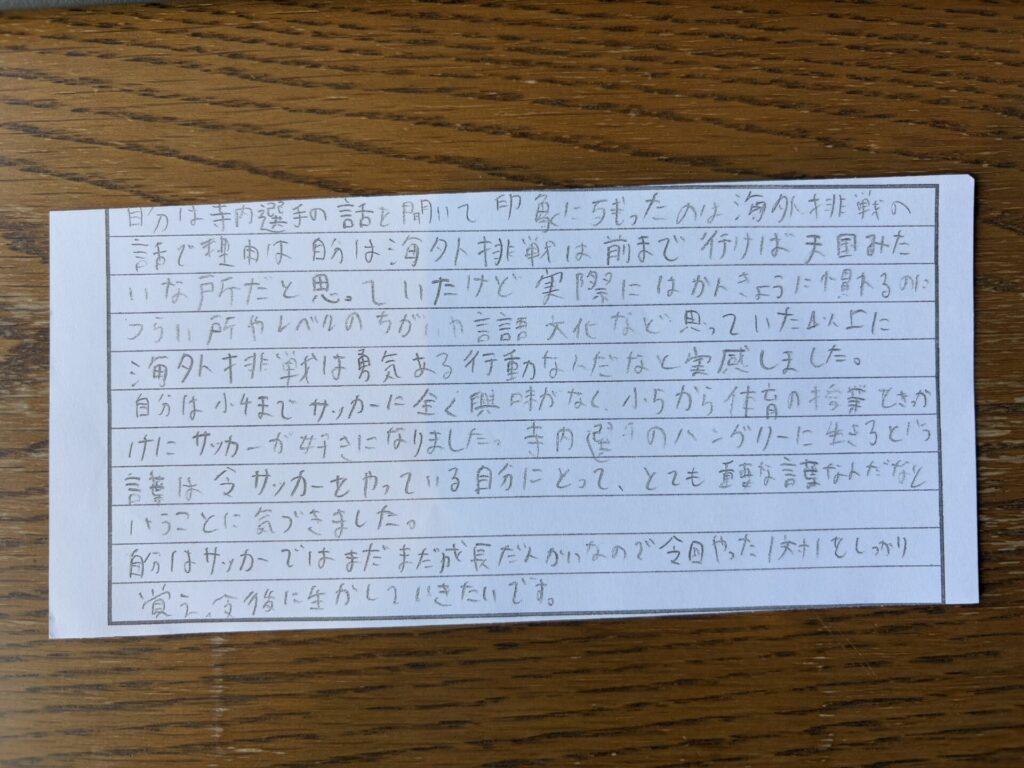 自分は寺内選手の話を聞いて印象にうもったのは海外挑戦の
話で理由は自分は海外挑戦は前まで行けば天国みた
いな所だと思っていたけど実際にはかんきょうに慣れるのに
つらい所やレベルのちがいや言語文化など思っていた以上に
海外挑戦は勇気ある行動なんだなと実感しました。
自分は小4までサッカーに全く興味がなく、小5から体育の授業をきっか
けにサッカーが好きになりました。寺内選手のハングリーに生きるという
言葉は今サッカーをやっている自分にとって、とても重要な言葉なんだなと
いうことに気づきました。
自分はサッカーではまだまだ成長だんかいなので今回やった1対1をしっかり
覚え、今後に生かしていきたいです。